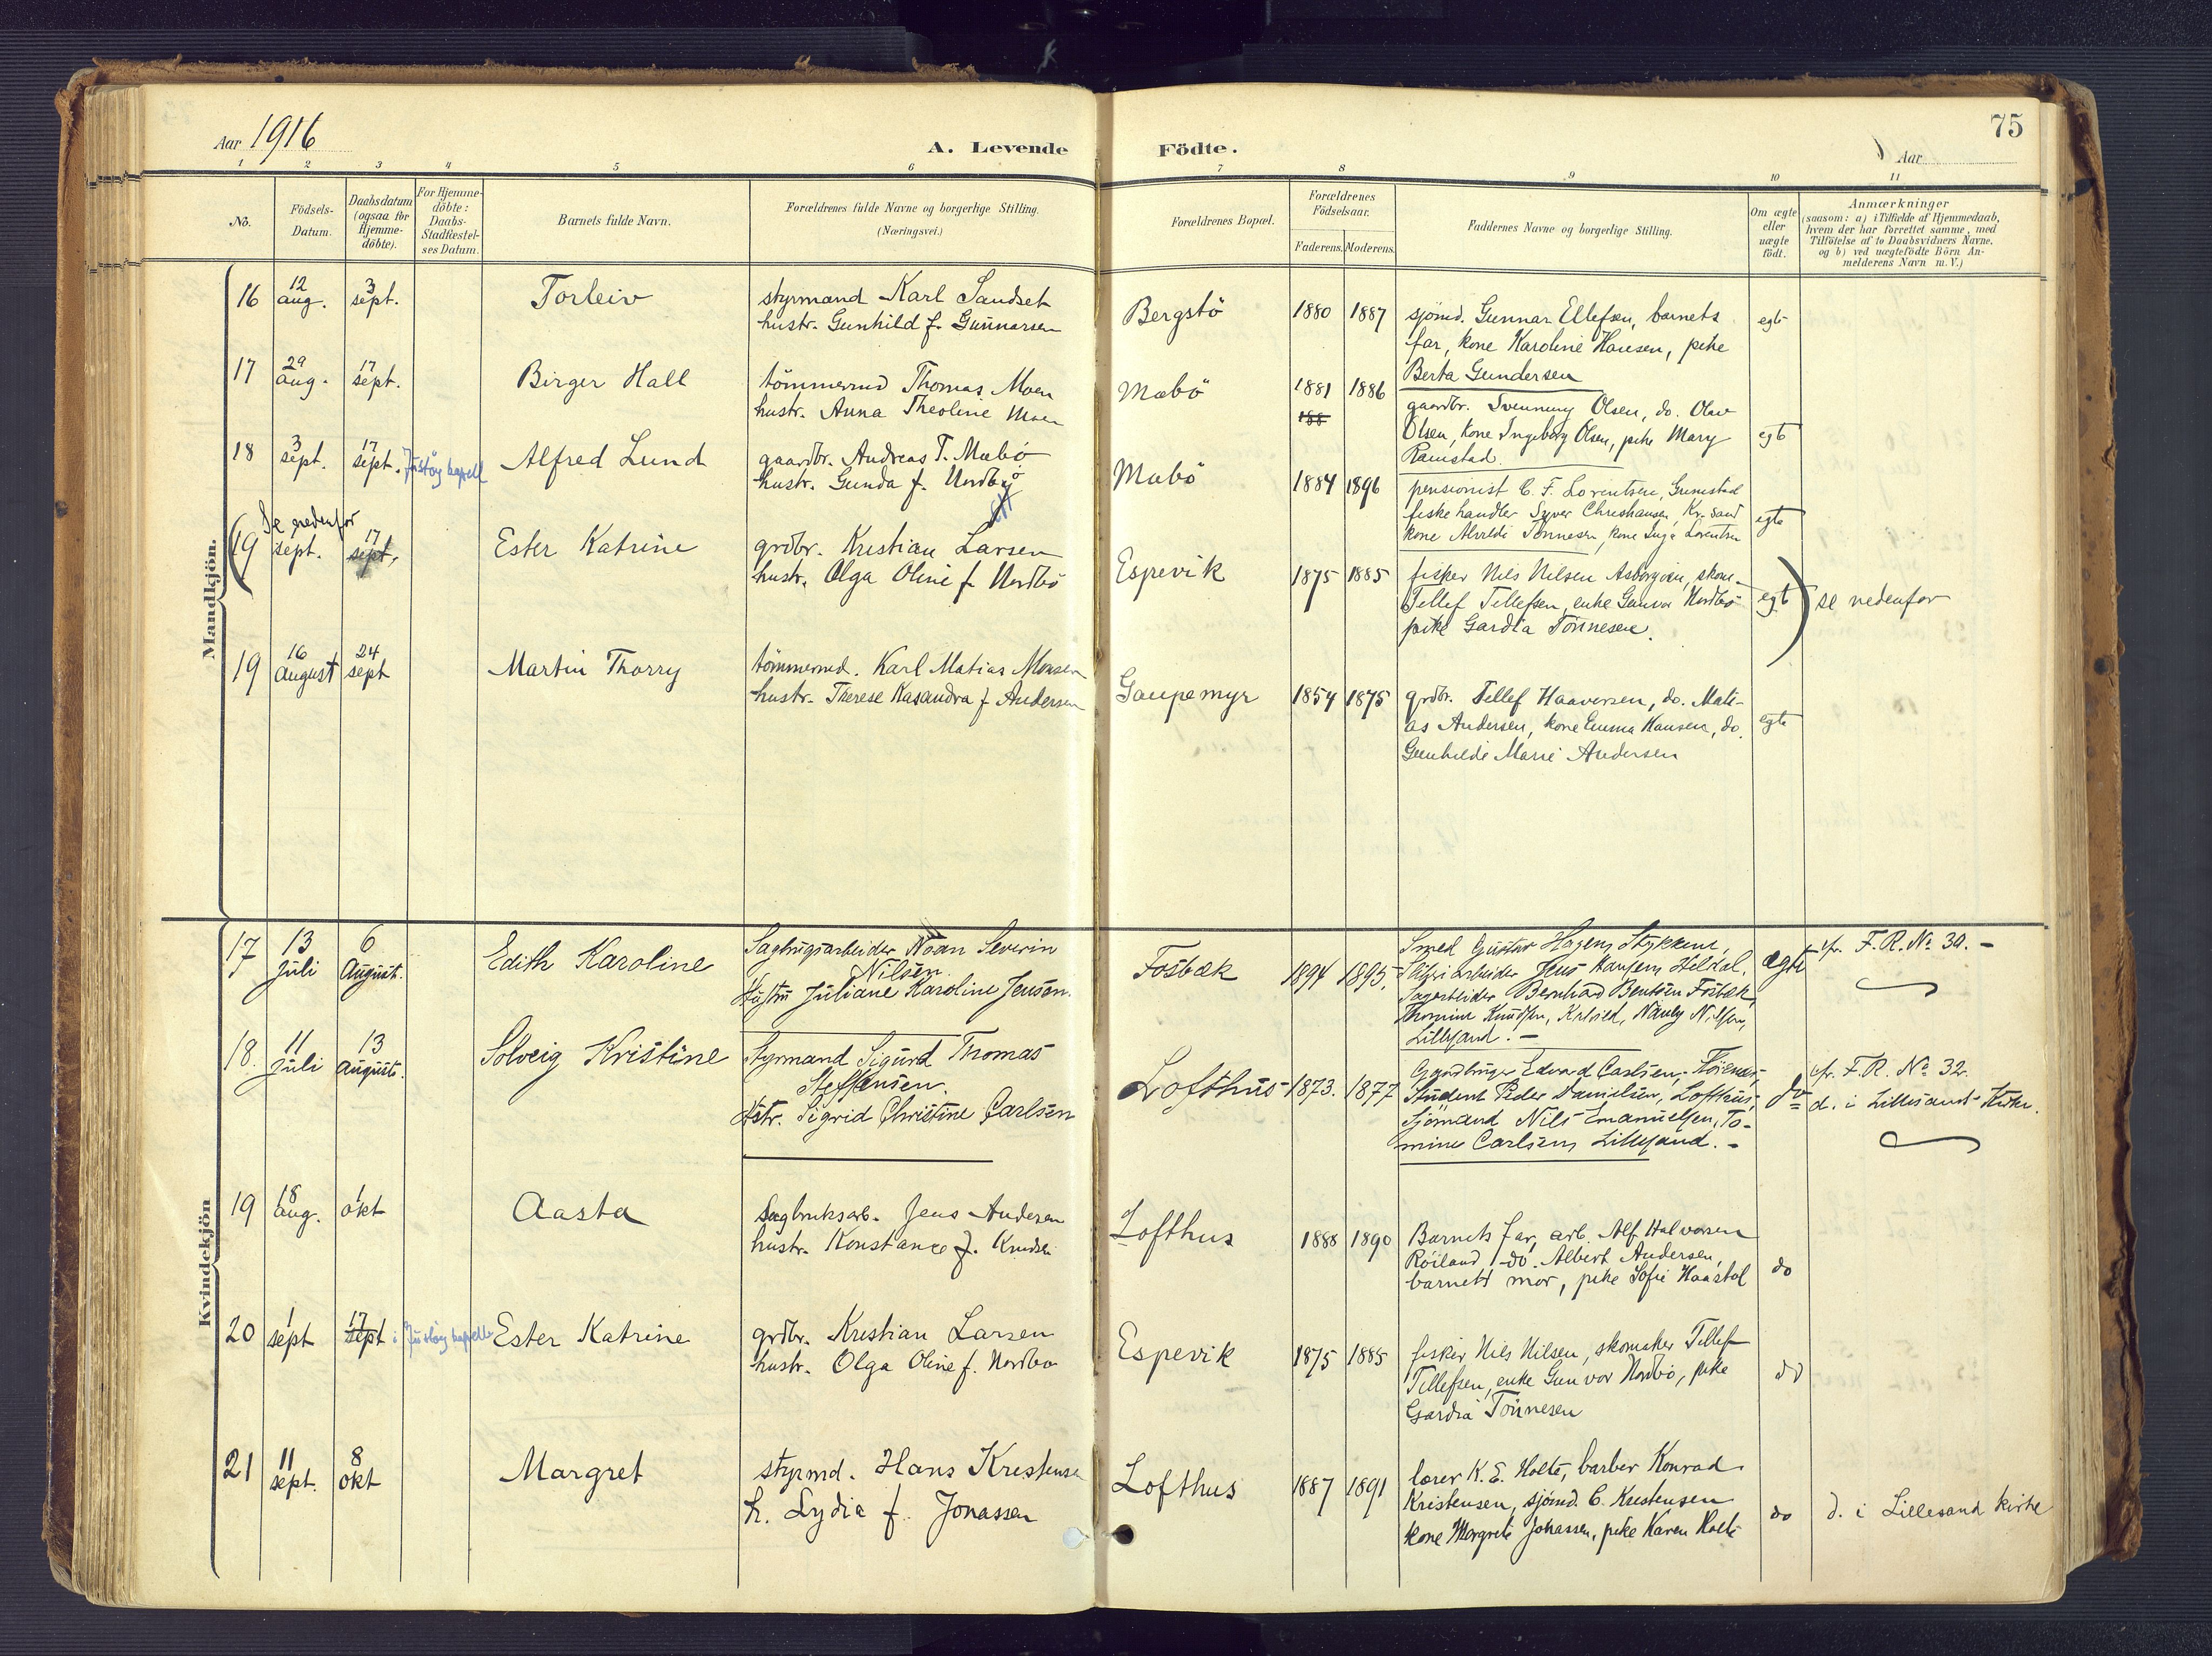 Aar 1916
A. Levende Födte.
Aar
75
1 2 3 4 5 6 7 8 9 10 11
No.
Födsels-Datum.
Daabsdatum (ogsaa for Hjemme-döbte).
For Hjemme-döbte: Daabs-Stadfæstel-ses Datum.
Barnets fulde Navn.
Forældrenes fulde Navne og borgerlige Stilling.
(Næringsvei.)
Forældrenes Bopæl.
Forældrenes Födselsaar.
Faderens. Moderens.
Faddernes Navne og borgerlige Stilling.
Om ægte eller uægte födt.
Anmærkninger
(saasom: a) i Tilfælde af Hjemmedaab,
hvem der har forrettet samme, med
Tilföielse af to Daabsvidners Navne.
og b) ved uægtefödte Börn An-
melderens Navn m. V.)
Mandkjön.
16 12 aug. 3 sept. Torleiv
styrmand Karl Sandset
hustr. Gunhild f. Gunnarsen
Bergstö 1880 1887
sjömd. Gunnar Ellefsen, barnets
far, kone Karoline Hansen, pike
Berta Gundersen
egte
17 29 aug. 17 sept. Birger Hall
tömmermd Thomas Moen
hustr. Anna Theoline Moen
Mæbö 1881 1886
188
gaardbr. Svennung Olsen, do. Olav
Olsen, kone Ingeborg Olsen, pike Mary
Ramstad.
egte
18 3 sept. 17 sept. Justöy kapell Alfred Lund
gaardbr. Andreas T. Mæbö
hustr. Gunda f. Nordbö
Mæbö 1884 1896
pensionist C. F. Lorentsen, Grimstad
fiskehandler Syver Christiansen, Kr.sand
kone Alvilde Tönnesen, kone Inga Lorentsen
egte
Se nedenfor
(19 sept. 17 sept. Ester Katrine
grdbr. Kristian Larsen
hustr. Olga Oline f. Nordbö
Espevik 1875 1885
fisker Nils Nilsen Asbergvien, skom.
Tellef Tellefsen, enke Gunvor Nordbö
pike Gardia Tönnesen.
egte ) se nedenfor
19 16 august 24 sept Martin Thorry
tömmermd. Karl Matias Monsen
hustr. Therese Kasandra f. Andersen
Gaupemyr 1854 1875
grdbr. Tellef Haaversen, do. Mati-
as Andersen, kone Emma Hansen, do.
Gunhilde Marie Andersen
egte
Kvindekjön
17 13 Juli 6 August. Edith Karoline
Sagbrugsarbeider Noan Severin
Nilsen
Hustru Juliane Karoline Jensen.
Fosbæk 1894 1895.
Smed Gustav Hagens Stykkene,
arbeider Jens Hansens Heldal,
Sagarbeider Bernhard Bentsen Fosbæk,
Thomine Knudsen, Nauly Nilsen,
Lillesand. -
ægte
cfr. F.R. No 30. -
18. 11 Juli 13 August. Solveig Kristine
Styrmand Sigurd Thomas
Steffensen.
Hstr. Sigrid Christine Carlsen
Lofthus 1873. 1877
Gaardbruger Edvard Carlsen,
Student Peder Danielsen, Lofthus,
Sjömand Nils Emanuelsen, To-
mine Carlsens Lillesand. -
do
cfr. F.R. No 32.
d. i Lillesands Kirke.
19 18 aug. 1 okt Aasta
Sagbruksarb. Jens Andersen
hustr. Konstance f. Knudsen
Lofthus 1888 1890
Barnets far, arb. Alf Halvorsen
Röiland, do. Albert Andersen,
barnets mor, pike Sofie Haastöl
do
20 1 sept 17 sept i Justöy kapell Ester Katrine
grdbr. Kristian Larsen
hustr. Olga Oline f. Nordbö
Espevik 1875 1885
fisker Nils Nilsen, skomaker Tellef
Tellefsen, enke Gunvor Nordbö, pike
Gardia Tönnesen
do
21 11 sept. 8 okt Margret
styrmd. Hans Kristensen
h. Lydia f. Jonassen
Lofthus 1887 1891
lærer K. E. Holte, barber Konrad
Kristensen, sjömd. C. Kristensen
kone Margrete Johassen, pike Karen Holte
do
d. i Lillesand kirke